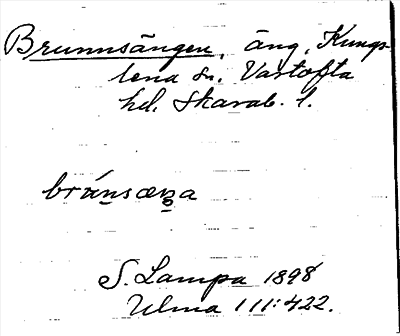 Brunnsängen, äng, Kungs-
lena sn. Vartofta
hd. Skarab. l.
brúnsæŋa
S. Lampa 1898
Ulma 111:422.